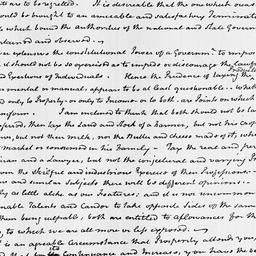 its are to be regretted. It is desireable that the one which occas
would be brought to an amicable and satisfactory Termination
which bound the authorities of the national and State Govern
explained and observed.
ever possesses the constitutional Power of a Government to impose
it should not be so exercised as to impede or discourage the lawful
and Exertions of Individuals. Hence the Prudence of laying th
mental or manual appears to be at least questionable. Whet
id only by Property or only by Income or to both, are Points on which
uniform. I am inclined to think that both should not be ta
posed, then tax the Land and Stock of a Farmer, but not his Crops
ws, but not their milk, nor the Butter and cheese made of it, whe
market or consumed in his Family. Tax the real and per
ician and a Lawyer, but not the conjectural and varying Pr
om the skilful and industrious Exercise of their Professions.
ese and similar Subjects there will be different opinions.
as little alike as our Features; and it is not uncommon
nable Talents and Candor to take opposite Sides of the same
them being culpable, both are entitled to allowances for th
, to which we are all more or less exposed.
is an agreable Circumstance that Property affords you,
its Continuance and Increase, you have the be